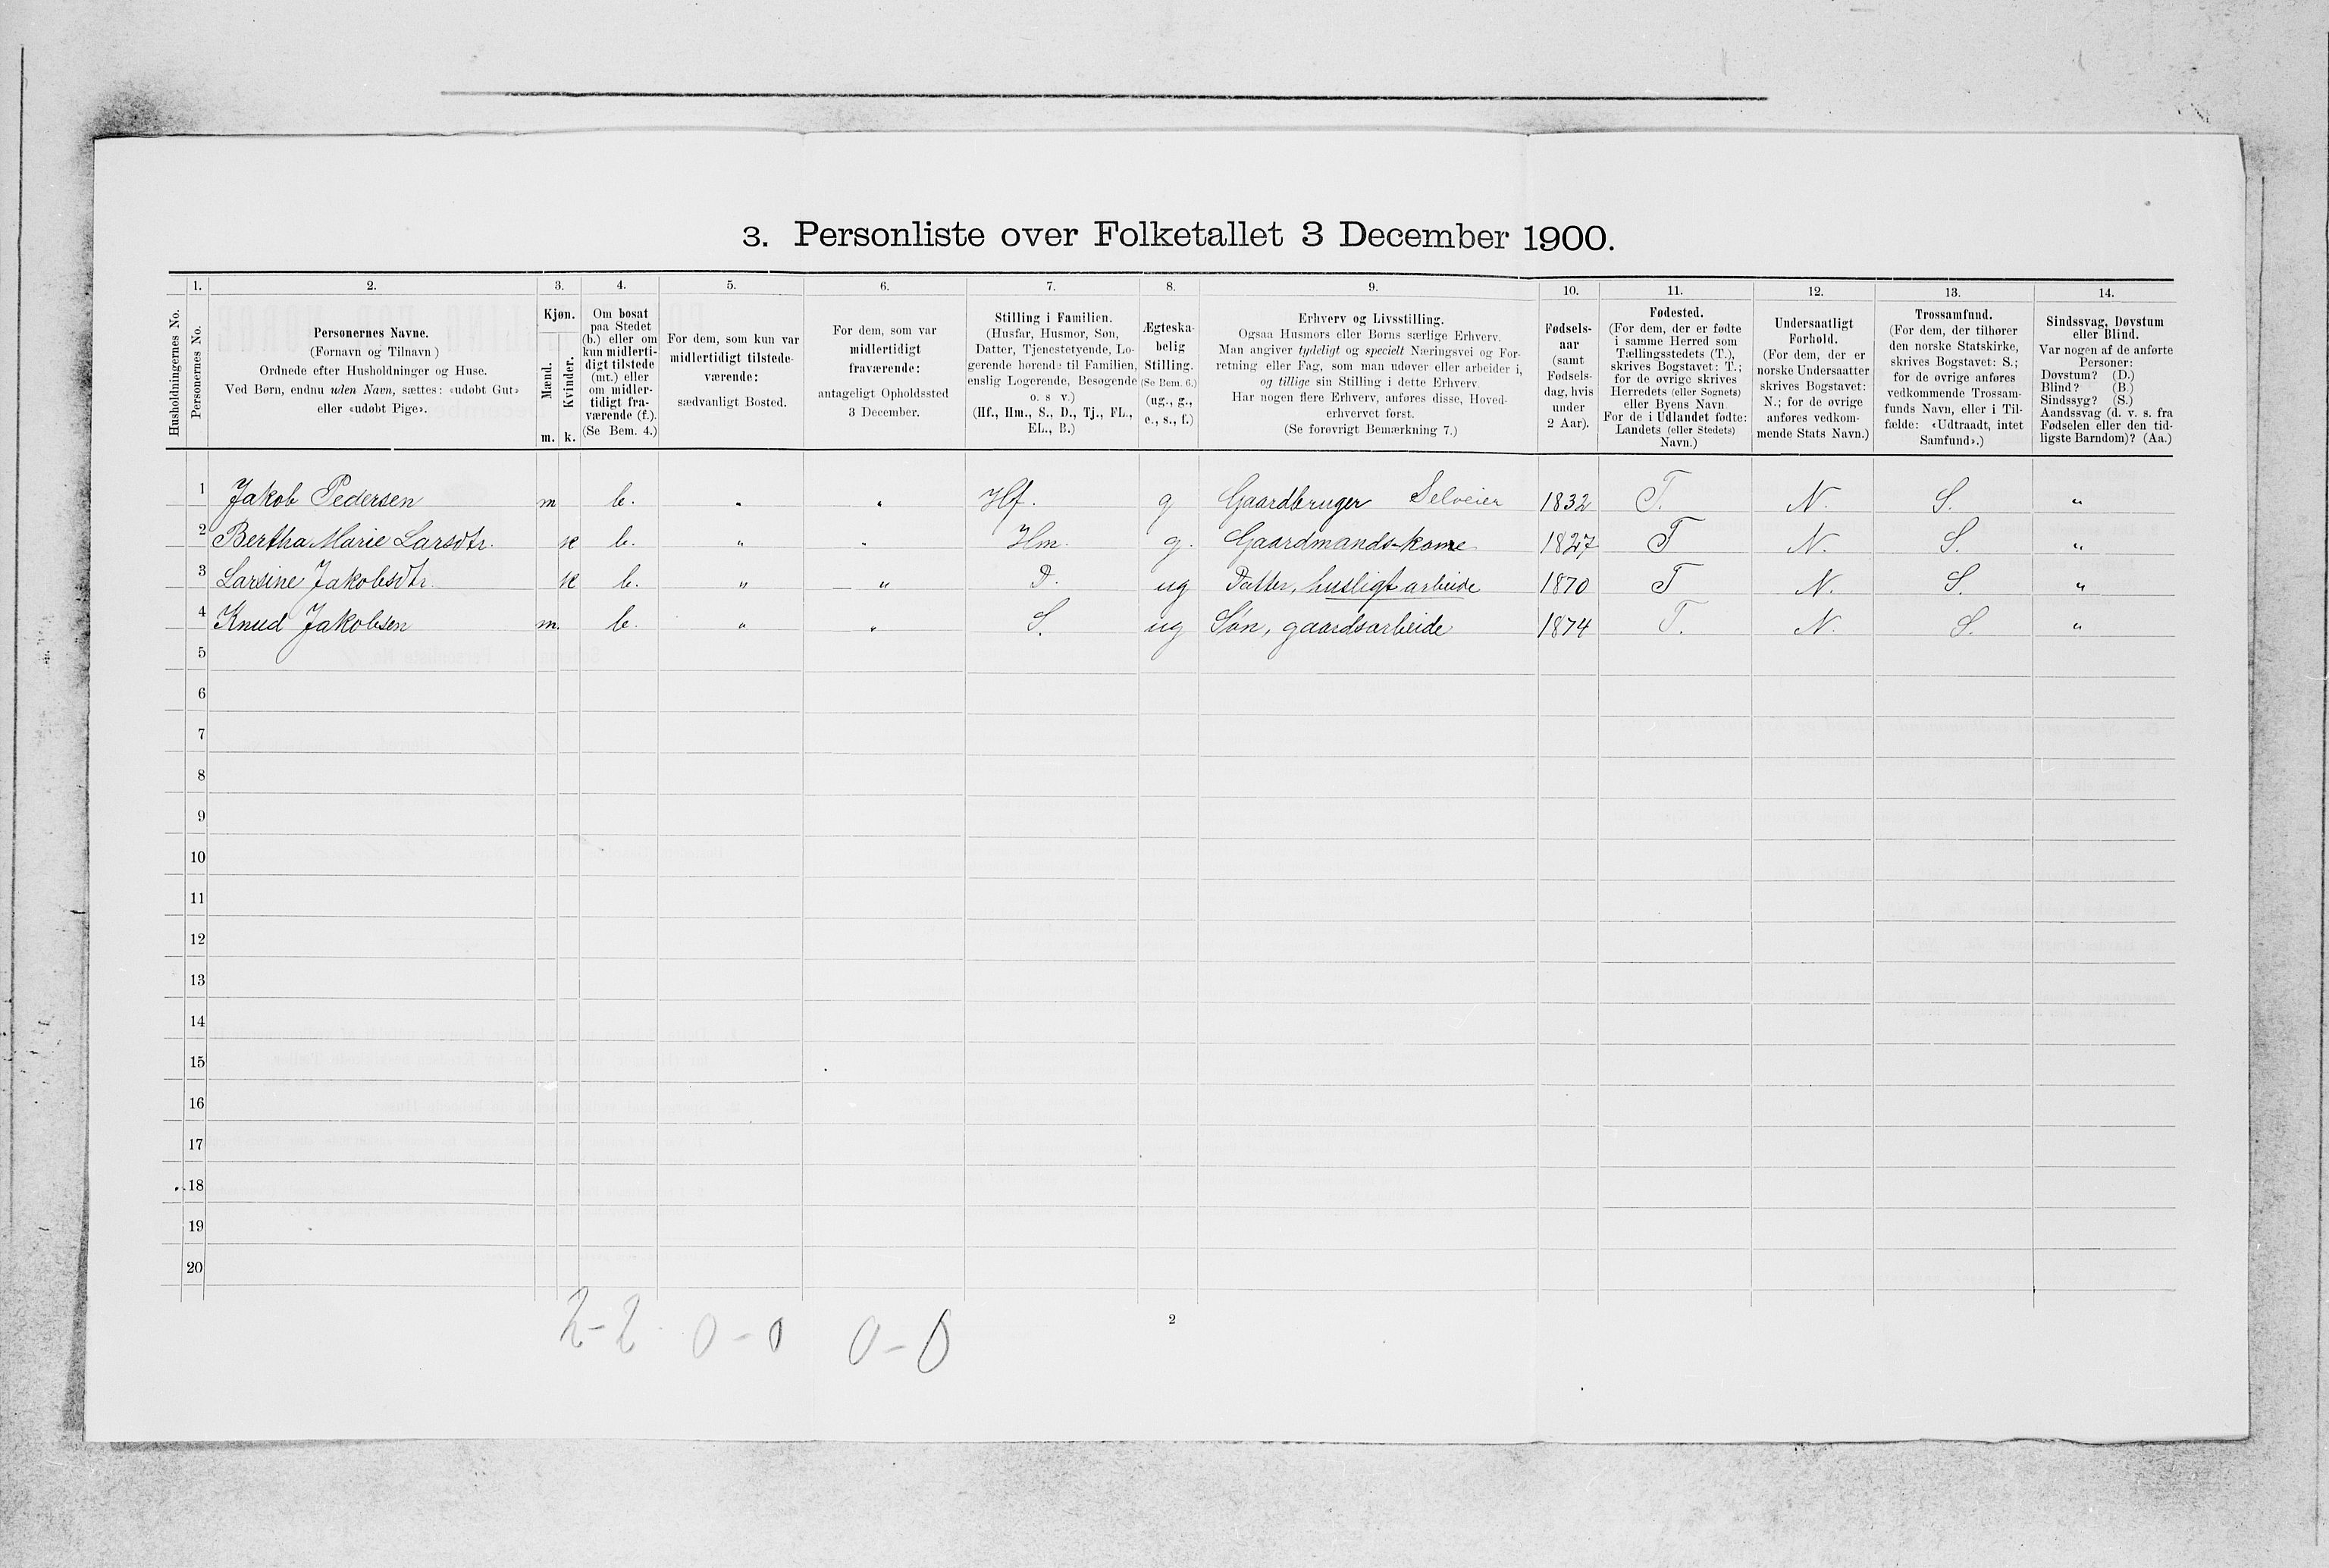 3. Personliste over Folketallet 3 December 1900.
1. 2. 3. 4. 5. 6. 7. 8. 9. 10. 11. 12. 13. 14.
Husholdningernes No.
Personernes No.
Personernes Navne.
(Fornavn og Tilnavn)
Ordnede efter Husholdninger og Huse.
Ved Børn, endnu uden Navn, sættes: «udøbt Gut»
eller «udøbt Pige».
Kjøn.
Mænd.
Kvinder.
m. k.
Om bosat
paa Stedet
(b.) eller om
kun midlerti-
digt tilstede
(mt.) eller
om midler-
tidigt fra-
værende (f.).
(Se Bem. 4.)
For dem, som kun var
midlertidigt tilstede-
værende:
sædvanligt Bosted.
For dem, som var
midlertidigt
fraværende:
antageligt Opholdssted
3 December.
Stilling i Familien.
(Husfar, Husmor, Søn,
Datter, Tjenestetyende, Lo-
gerende hørende til Familien,
enslig Logerende, Besøgende
o. s v.)
(Hf., Hm., S., D., Tj., FL.,
EL., B.)
Ægteska-
belig
Stilling.
(Se Bem. 6.)
(ug., g.,
e., s., f.)
Erhverv og Livsstilling.
Ogsaa Husmors eller Børns særlige Erhverv.
Man angiver tydeligt og specielt Næringsvei og For-
retning eller Fag, som man udøver eller arbeider i,
og tillige sin Stilling i dette Erhverv.
Har nogen flere Erhverv, anføres disse, Hoved-
erhvervet først.
(Se forøvrigt Bemærkning 7.)
Fødsels-
aar
(samt
Fødsels-
dag, hvis
under
2 Aar).
Fødested.
(For dem, der er fødte
i samme Herred som
Tællingsstedets (T.),
skrives Bogstavet: T.;
for de øvrige skrives
Herredets (eller Sognets)
eller Byens Navn
For de i Udlandet fødte:
Landets (eller Stedets)
Navn.)
Undersaatligt
Forhold.
(For dem, der er
norske Undersaatter
skrives Bogstavet:
N.; for de øvrige
anføres vedkom-
mende Stats Navn.)
Trossamfund.
(For dem, der tilhører
den norske Statskirke,
skrives Bogstavet: S.;
for de øvrige anføres
vedkommende Trossam-
funds Navn, eller i Til-
fælde: «Udtraadt, intet
Samfund».)
Sindssvag, Døvstum
eller Blind.
Var nogen af de anførte
Personer:
Døvstum? (D.)
Blind? (B.)
Sindssyg? (S.)
Aandssvag (d. v. s. fra
Fødselen eller den tid-
ligste Barndom)? (Aa.)
1 Jakob Pedersen m b. " " Hf. g Gaardbruger Selveier 1832 T. N. S. "
2 Bertha Marie Larsdtr. k b. " " Hm. g. Gaardmands-kone 1827 T N. S. "
3 Larsine Jakobsdtr. k b. " " D. ug Datter, husligt arbeide 1870 T N. S. "
4 Knud Jakobsen m. b. " " S. ug Søn, gaardsarbeide 1874 T. N. S. "
5
6
7
8
9
10
11
12
13
14
15
16
17
18
19
20
2-2 0-0 0-0
2